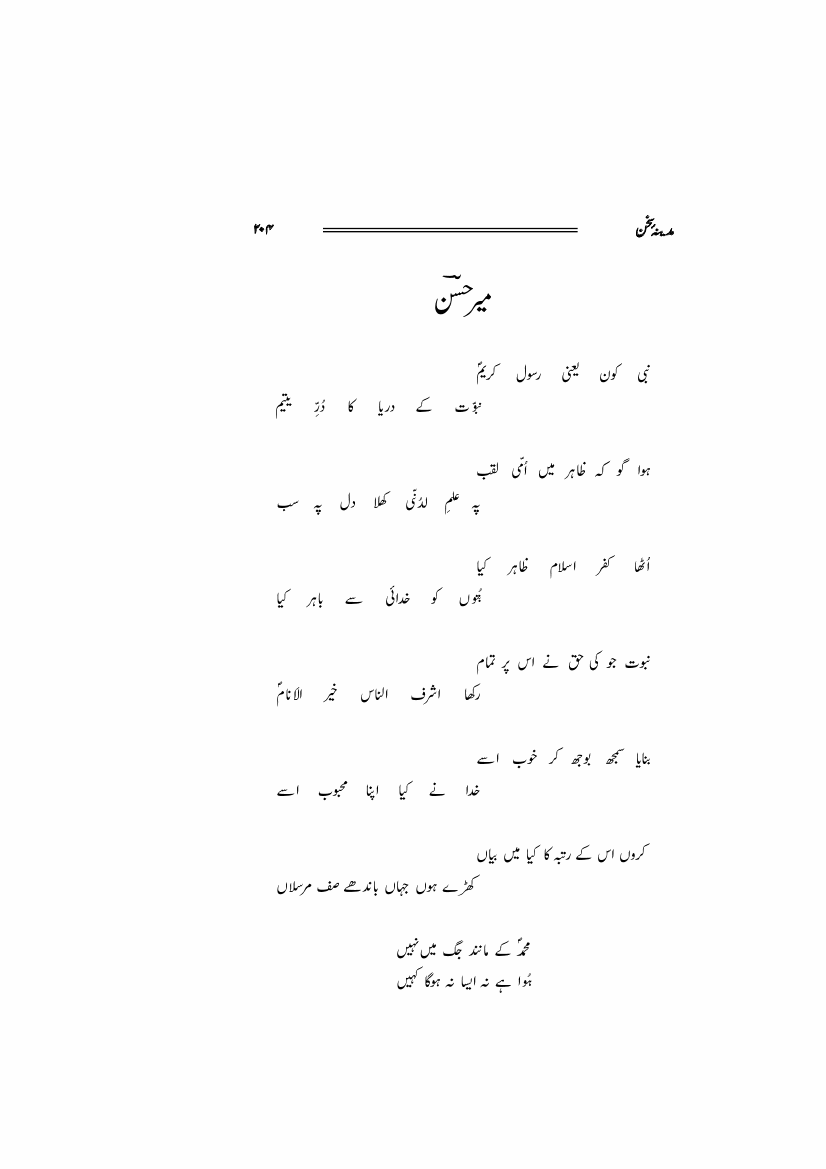 مدینہ سخن ۲۰۴
میر حسنؔ
نبی کون یعنی رسول کریمؐ
نبوّت کے دریا کا دُرِّ یتیم
ہوا گو کہ ظاہر میں اُمّی لقب
پہ علمِ لدُنّی کھلا دل پہ سب
اُٹھا کفر اسلام ظاہر کیا
بُتوں کو خدائی سے باہر کیا
نبوت جو کی حق نے اس پر تمام
رکھا اشرف الناس خیر الانامؐ
بنایا سمجھ بوجھ کر خوب اسے
خدا نے کیا اپنا محبوب اسے
کروں اس کے رتبہ کا کیا میں بیاں
کھڑے ہوں جہاں باندھے صف مرسلاں
محمدؐ کے مانند جگ میں نہیں
ہُوا ہے نہ ایسا نہ ہوگا کہیں